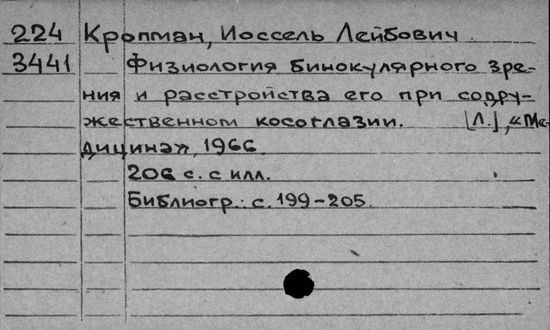 224 Кропман, Иоссель Лейбович
3441 Физиология бинокулярного зре-
ния и расстройства его при содру-
жественном косоглазии. [Л.], «Ме-
дицина», 1966.
206 с. с илл.
Библиогр.: с. 199-205.